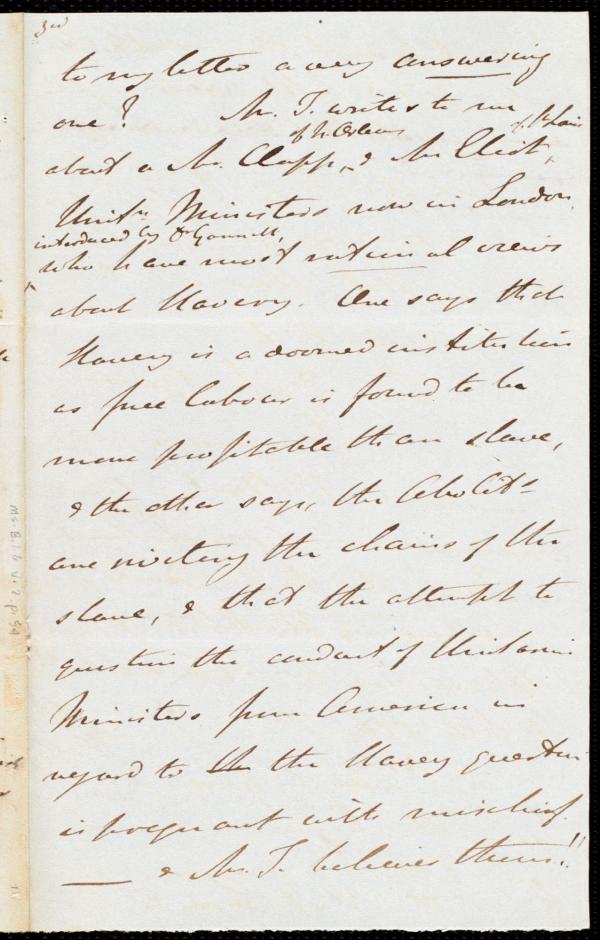 3rd
to my letter a very answering
one? Mr. T. writes to me
of N. Orleans of St Louis
about a Mr. Clapp, & Mr Eliot,
Unitn Ministers now in London,
introduced by Dr Gannett,
who have most rational views
about Slavery. One says that
Slavery is a doomed institution
as free labour is found to be
more profitable than slave,
& the other says, the Abolitts
are riveting the chains of the
slave, & that the attempt to
question the conduct of Unitarian
Ministers from America in
regard to the the Slavery question
is pregnant with mischief.
— & Mr. T. believes them!!
Ms. B. 1. 6 v. 2 p. 59